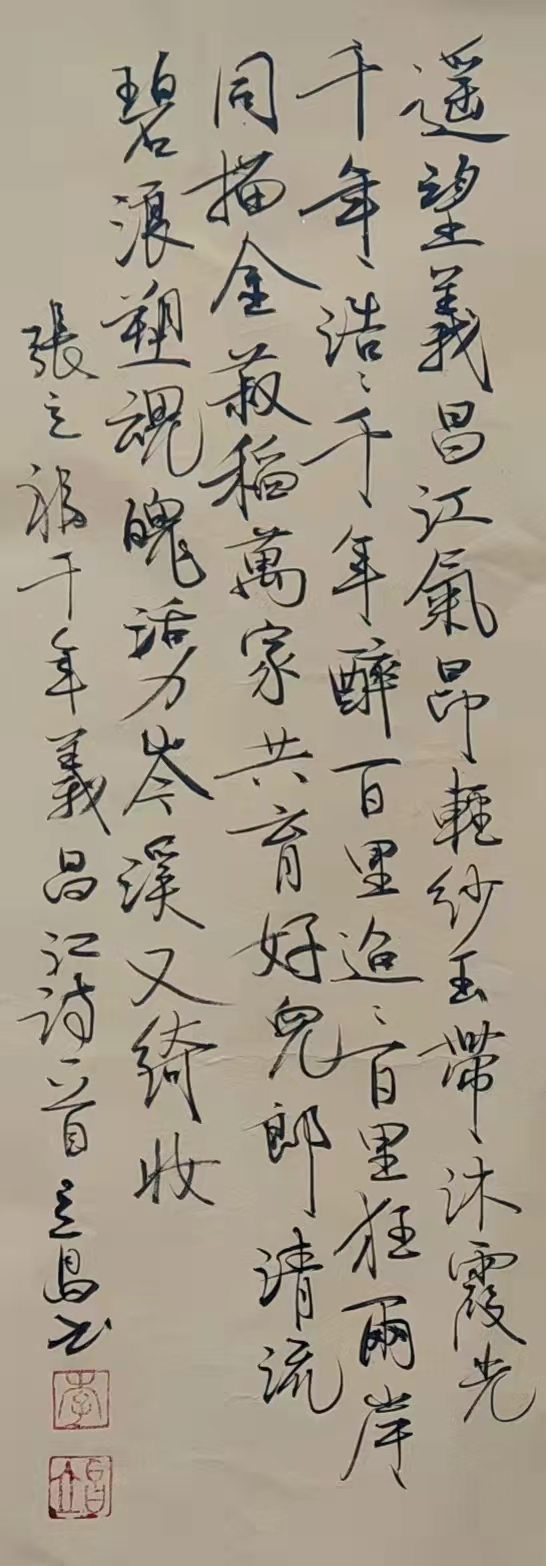 遥望義昌江氣昂輕紗玉帶沐霞光
千年浩々千年醉百里迢々百里狂兩岸
同描金菽稻萬家共育好兒郎清流
碧浪塑魂魄活力岑溪又綺妝
張立福千年義昌江诗一首立昌书
李
立昌